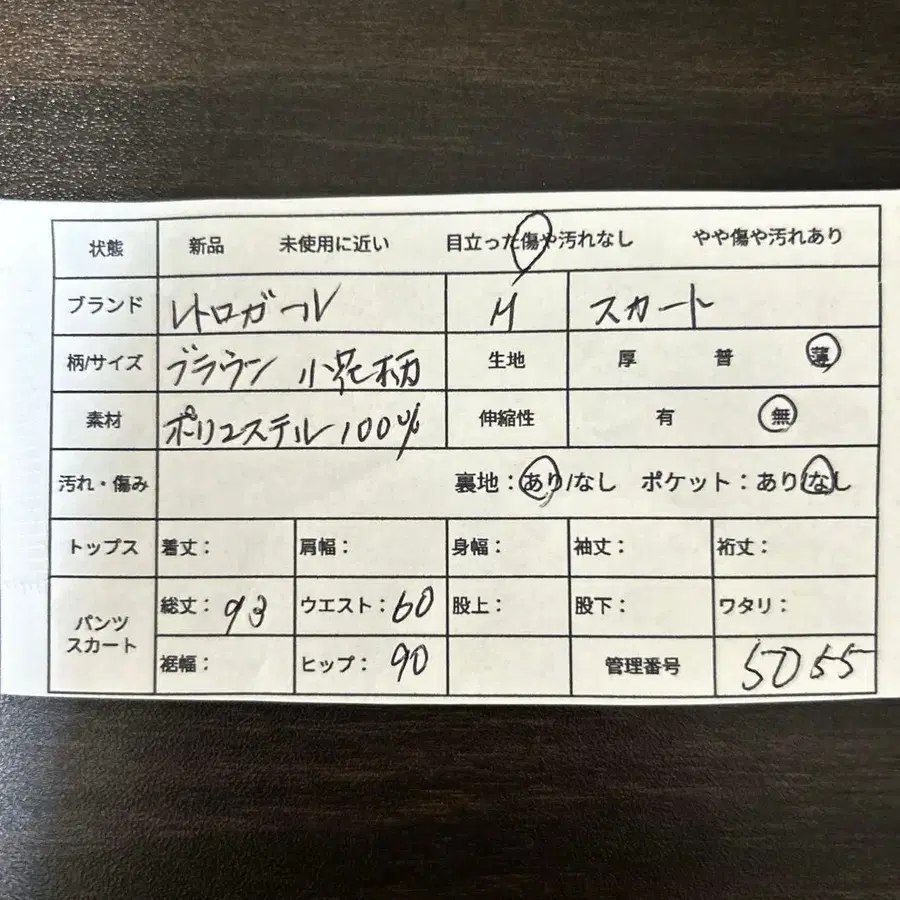 状態 新品 未使用に近い 目立った傷や汚れなし やや傷や汚れあり
ブランド レトロガール M スカート
柄/サイズ ブラウン 小花柄 生地 厚 普 薄
素材 ポリエステル100% 伸縮性 有 無
汚れ・傷み 裏地：あり/なし ポケット：あり/なし
トップス 着丈： 肩幅： 身幅： 袖丈： 裄丈：
パンツ スカート 総丈：93 ウエスト：60 股上： 股下： ワタリ：
裾幅： ヒップ：90 管理番号 5055